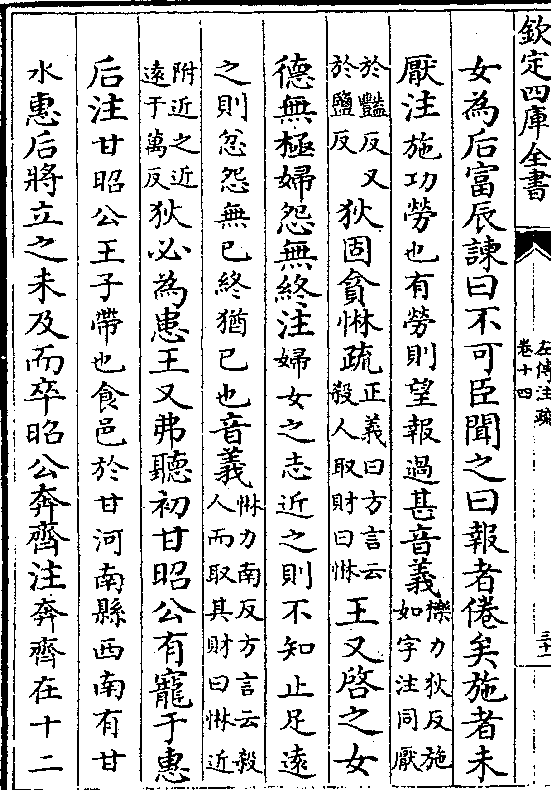 欽定四庫全書
左傳注疏
卷十四
三十
女為后富辰諫曰不可臣聞之曰報者倦矣施者未
厭注施功勞也有勞則望報過甚音義櫟力狄反施
如字注同厭
於豔反又
於鹽反狄固貪惏疏正義曰方言云
殺人取財曰惏王又啓之女
德無極婦怨無終注婦女之志近之則不知止足遠
之則忿怨無已終猶已也音義惏力南反方言云殺
人而取其財曰惏近
附近之近
遠于萬反狄必為患王又弗聽初甘昭公有寵于惠
后注甘昭公王子帶也食邑於甘河南縣西南有甘
水惠后將立之未及而卒昭公奔齊注奔齊在十二